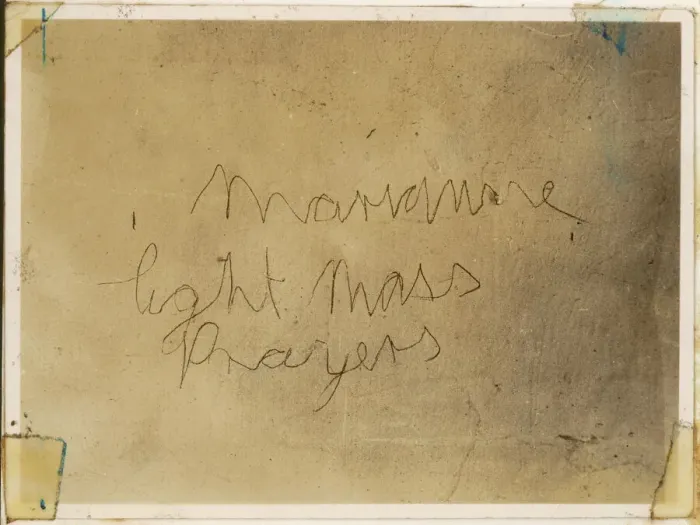 Marianne
light Mass
Prayers